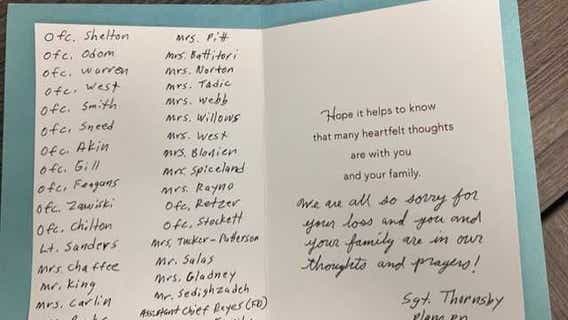 Ofc. Shelton
Ofc. Odom
Ofc. Warren
Ofc. West
Ofc. Smith
Ofc. Sneed
Ofc. Akin
Ofc. Gill
Ofc. Feagans
Ofc. Zawiski
Ofc. Chilton
Lt. Sanders
Mrs. Chaffee
Mr. King
Mrs. Carlin
Mrs. Pitt
Mrs. Battitori
Mrs. Norton
Mrs. Tadic
Mrs. Webb
Mrs. Willows
Mrs. West
Mrs. Blonien
Mrs. Spiceland
Mrs. Rayno
Ofc. Retzer
Ofc. Stockett
Mrs. Tucker-Patterson
Mr. Salas
Mrs. Gladney
Mr. Sedighzadeh
Assistant Chief Reyes (FD)
Hope it helps to know
that many heartfelt thoughts
are with you
and your family.
We are all so sorry for
your loss and you and
your family are in our
thoughts and prayers!
Sgt. Thornsby